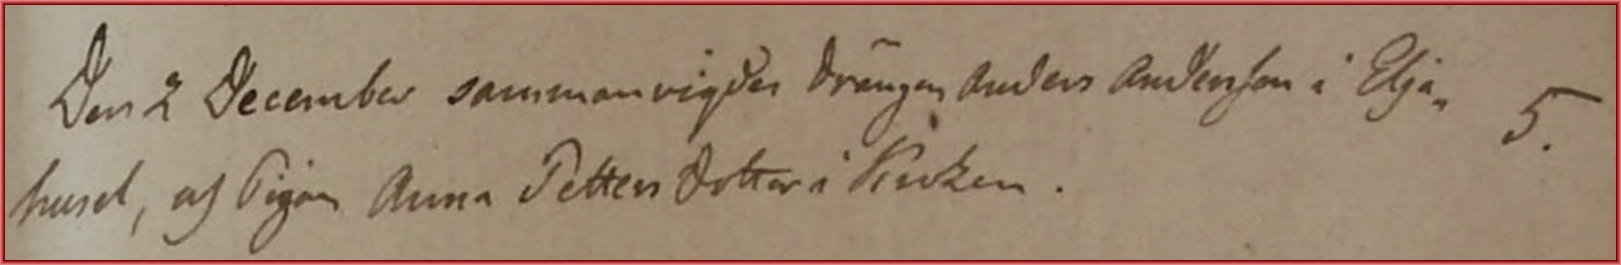 Den 2 December sammanvigdes Drängen Anders Andersson i Elja„ 5.
huset, och Pigan Anna Petters Dotter i Kirken.